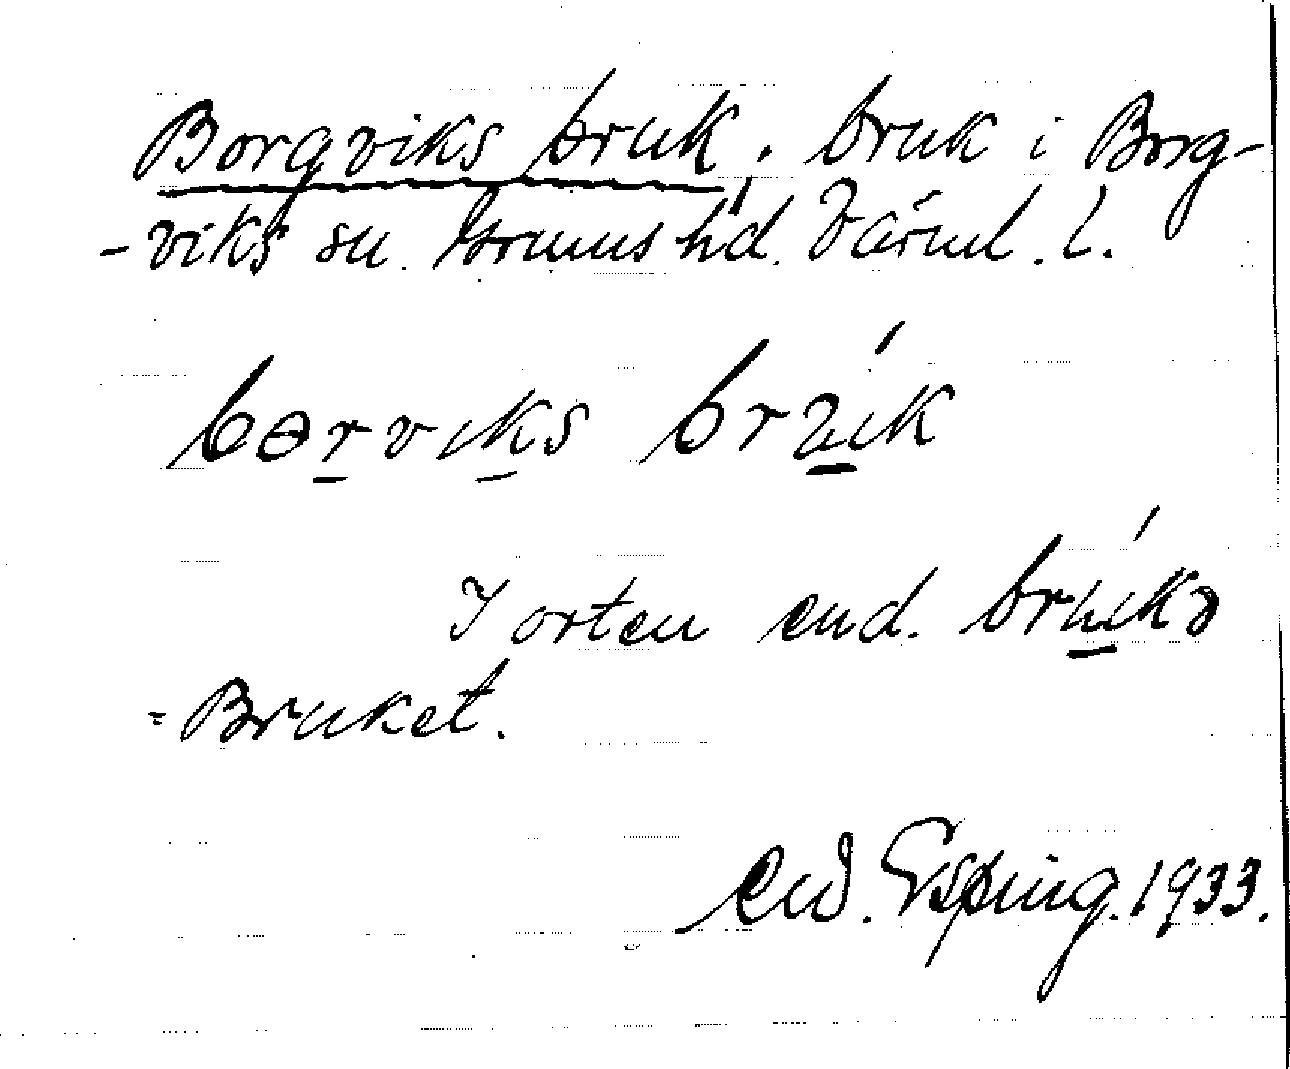 Borgviks bruk, bruk i Borg-
-viks sn. Grums hd. Värml. l.
bɵrviks brúk
I orten end. brúkə
= Bruket.
Eld. Esping. 1933.